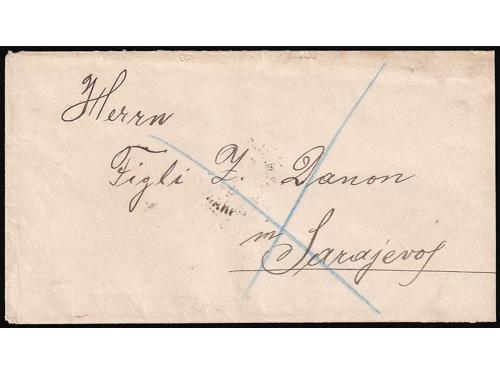 Herrn
Figli Z. Danon
in Sarajevo